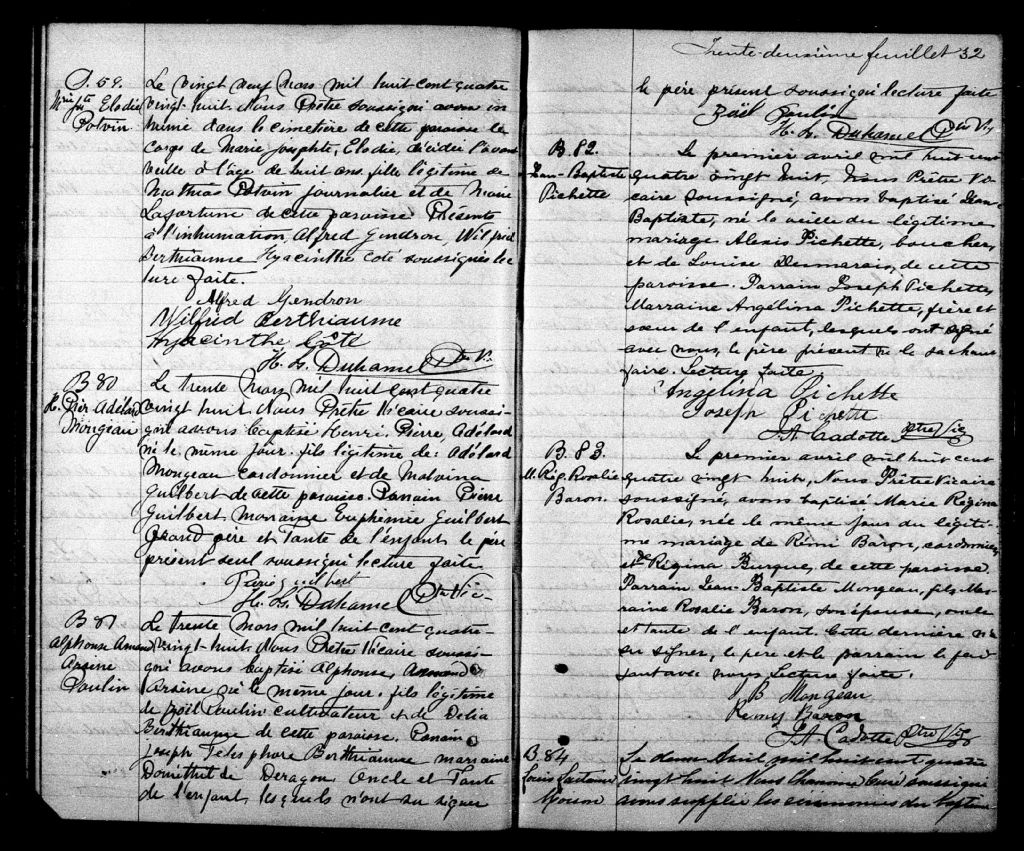 S. 59.
Mrie Jphte Elodie
Potvin
Le vingt neuf Mars mil huit cent quatre
vingt-huit Nous Prêtre soussigné avons in
humé dans le cimetière de cette paroisse le
corps de Marie Josephte, Elodie, décédée l'avant
veille à l'âge de huit ans, fille légitime de
Mathias Potvin journalier et de Marie
Lafortune de cette paroisse Présents
à l'inhumation, Alfred Gendron, Wilfrid
Berthiaume Hyacinthe Coté soussignés lec
ture faite.
Alfred Gendron
Wilfrid Berthiaume
Hyacinthe Côté
H. L. Duhamel Ptre V.
B 80
H. Pier-Adélard
Mongeau
Le trente Mars mil huit cent quatre
vingt huit Nous Prêtre Vicaire soussi-
gné avons baptisé Henri, Pierre, Adélard
né le même jour, fils légitime de Adélard
Mongeau cordonnier et de Malvina
Guilbert de cette paroisse. Parrain Pierre
Guilbert Marraine Euphémie Guilbert
Grand père et Tante de l'enfant le père
présent seul soussigné lecture faite
guilbert
H. L. Duhamel Ptre Vic-
B 81
Alphonse Armand
Arsine
Poulin
Le trente Mars mil huit cent quatre-
vingt-huit Nous Prêtre Vicaire soussi-
gné avons baptisé Alphonse, Armand
Arsène né le même jour. fils légitime
de Zoël Poulin cultivateur et de Délia
Berthiaume de cette paroisse. Parrain
Joseph Télesphore Berthiaume marraine
Domithilde Deragon Oncle et Tante
de l'enfant, lesquels n'ont su signer
Trente-deuxième feuillet 32
le père présent soussigné lecture faite
Zoël Poulin
H. L. Duhamel Ptre Vic
B. 82.
Jean-Baptiste
Pichette
Le premier avril mil huit cent
quatre vingt huit Nous Prêtre Vi-
caire soussigné, avons baptisé Jean-
Baptiste, né la veille du légitime
mariage Alexis Pichette, boucher,
et de Louise Desmarais, de cette
paroisse. Parrain Joseph Pichette,
Marraine Angélina Pichette, frère et
sœur de l'enfant, lesquels ont signé
avec nous, le père présent ne le sachant
faire. Lecture faite.
Angélina Pichette
Joseph Pichette
J. A. Cadotte Ptre Vic
B. 83.
M. Rég. Rosalie
Baron.
Le premier avril mil huit cent
quatre vingt huit, Nous Prêtre Vicaire
soussigné, avons baptisé Marie Régina
Rosalie, née le même jour du légiti-
me mariage de Rémi Baron, cordonnier,
et Régina Burque, de cette paroisse.
Parrain Jean-Baptiste Mongeau, fils, Mar-
raine Rosalie Baron, son épouse, oncle
et tante de l'enfant. Cette dernière n'a
su signer, le père et le parrain le fai-
sant avec nous. Lecture faite.
J B Mongeau
Remis Baron
J. A. Cadotte Ptre Vic
B. 84
Louis
Le deux Avril mil huit cent quatre
vingt huit Nous Chanoine Curé soussigné
avons suppléé les cérémonies du baptême